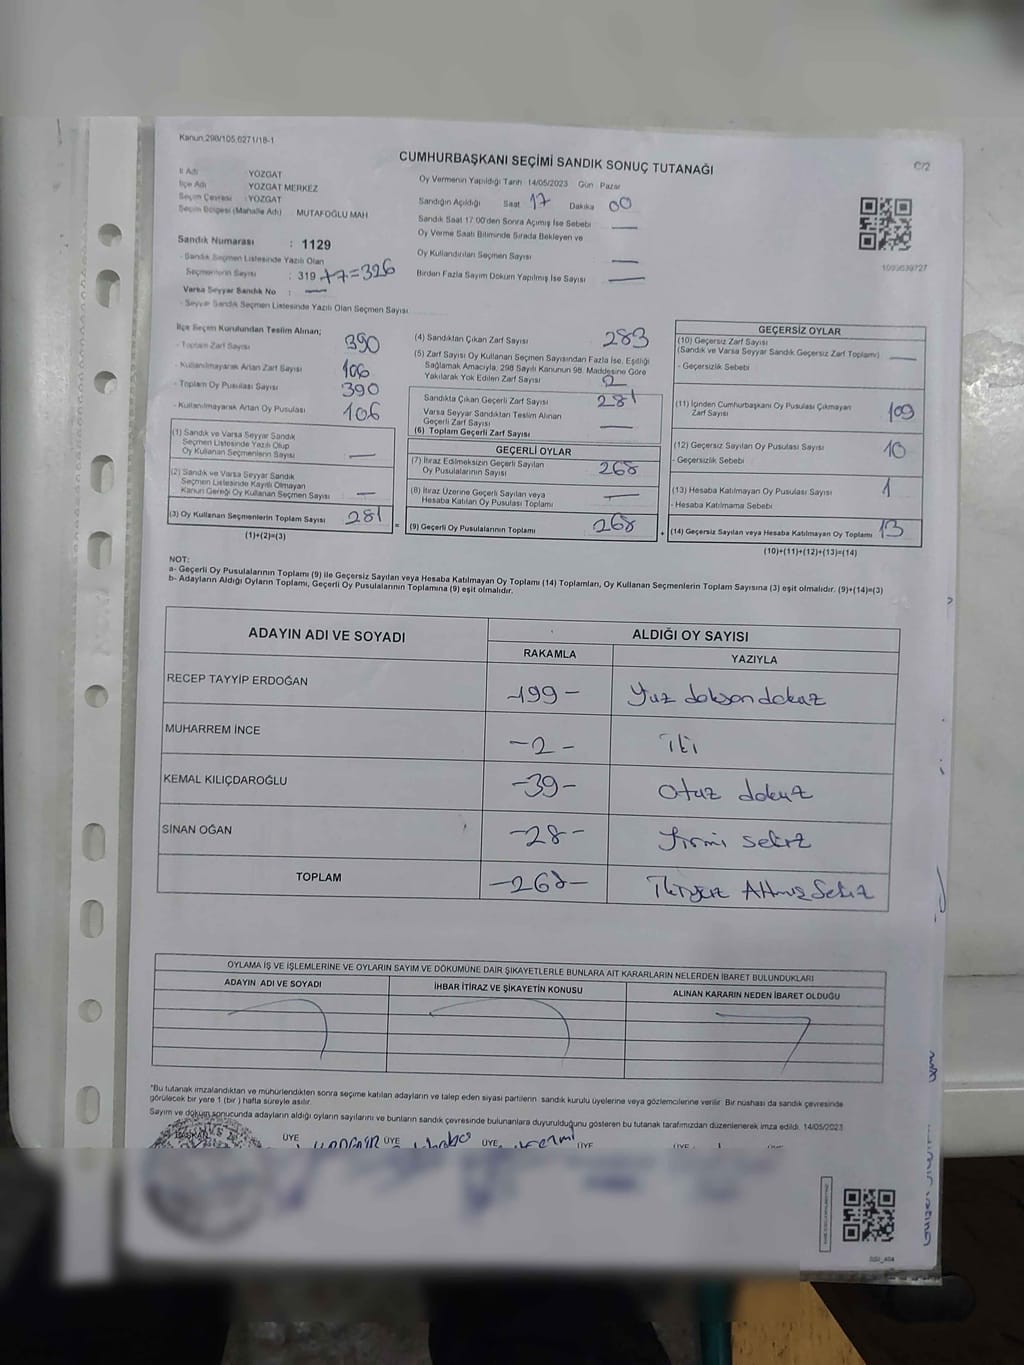 Kanun 298/105,6271/18-1
CUMHURBAŞKANI SEÇİMİ SANDIK SONUÇ TUTANAĞI
C/2
İl Adı YOZGAT
İlçe Adı YOZGAT MERKEZ
Seçim Çevresi : YOZGAT
Seçim Bölgesi (Mahalle Adı) MUTAFOĞLU MAH
Sandık Numarası : 1129
- Sandık Seçmen Listesinde Yazılı Olan
Seçmenlerin Sayısı : 319 +7=326
Varsa Seyyar Sandık No : —
- Seyyar Sandık Seçmen Listesinde Yazılı Olan Seçmen Sayısı
Oy Vermenin Yapıldığı Tarih 14/05/2023 Gün Pazar
Sandığın Açıldığı Saat 17 Dakika 00
Sandık Saat 17 00'den Sonra Açılmış İse Sebebi —
Oy Verme Saati Bitiminde Sırada Bekleyen ve
Oy Kullandırılan Seçmen Sayısı —
Birden Fazla Sayım Döküm Yapılmış İse Sayısı —
1099639727
İlçe Seçim Kurulundan Teslim Alınan;
- Toplam Zarf Sayısı 390
- Kullanılmayarak Artan Zarf Sayısı 106
- Toplam Oy Pusulası Sayısı 390
- Kullanılmayarak Artan Oy Pusulası 106
(1) Sandık ve Varsa Seyyar Sandık
Seçmen Listesinde Yazılı Olup
Oy Kullanan Seçmenlerin Sayısı —
(2) Sandık ve Varsa Seyyar Sandık
Seçmen Listesinde Kayıtlı Olmayan
Kanun Gereği Oy Kullanan Seçmen Sayısı —
(3) Oy Kullanan Seçmenlerin Toplam Sayısı 281
(1)+(2)=(3)
=
(4) Sandıktan Çıkan Zarf Sayısı 283
(5) Zarf Sayısı Oy Kullanan Seçmen Sayısından Fazla İse, Eşitliği
Sağlamak Amacıyla, 298 Sayılı Kanunun 98. Maddesine Göre
Yakılarak Yok Edilen Zarf Sayısı 2
Sandıkta Çıkan Geçerli Zarf Sayısı 281
Varsa Seyyar Sandıktan Teslim Alınan
Geçerli Zarf Sayısı —
(6) Toplam Geçerli Zarf Sayısı
GEÇERLİ OYLAR
(7) İtiraz Edilmeksizin Geçerli Sayılan
Oy Pusulalarının Sayısı 268
(8) İtiraz Üzerine Geçerli Sayılan veya
Hesaba Katılan Oy Pusulası Toplamı —
(9) Geçerli Oy Pusulalarının Toplamı 268
+
GEÇERSİZ OYLAR
(10) Geçersiz Zarf Sayısı
(Sandık ve Varsa Seyyar Sandık Geçersiz Zarf Toplamı) —
- Geçersizlik Sebebi
(11) İçinden Cumhurbaşkanı Oy Pusulası Çıkmayan
Zarf Sayısı
(12) Geçersiz Sayılan Oy Pusulası Sayısı 10
- Geçersizlik Sebebi
(13) Hesaba Katılmayan Oy Pusulası Sayısı 1
- Hesaba Katılmama Sebebi
(14) Geçersiz Sayılan veya Hesaba Katılmayan Oy Toplamı 13
(10)+(11)+(12)+(13)=(14)
NOT:
a- Geçerli Oy Pusulalarının Toplamı (9) ile Geçersiz Sayılan veya Hesaba Katılmayan Oy Toplamı (14) Toplamları, Oy Kullanan Seçmenlerin Toplam Sayısına (3) eşit olmalıdır. (9)+(14)=(3)
b- Adayların Aldığı Oyların Toplamı, Geçerli Oy Pusulalarının Toplamına (9) eşit olmalıdır.
ADAYIN ADI VE SOYADI
ALDIĞI OY SAYISI
RAKAMLA YAZIYLA
RECEP TAYYİP ERDOĞAN -199- Yüz doksan dokuz
MUHARREM İNCE -2- İki
KEMAL KILIÇDAROĞLU -39- Otuz dokuz
SİNAN OĞAN -28- Yirmi sekiz
TOPLAM -268- İkiyüz Altmış Sekiz
OYLAMA İŞ VE İŞLEMLERİNE VE OYLARIN SAYIM VE DÖKÜMÜNE DAİR ŞİKAYETLERLE BUNLARA AİT KARARLARIN NELERDEN İBARET BULUNDUKLARI
ADAYIN ADI VE SOYADI İHBAR İTİRAZ VE ŞİKAYETİN KONUSU ALINAN KARARIN NEDEN İBARET OLDUĞU
*Bu tutanak imzalandıktan ve mühürlendikten sonra seçime katılan adayların ve talep eden siyasi partilerin sandık kurulu üyelerine veya gözlemcilerine verilir. Bir nüshası da sandık çevresinde
görülecek bir yere 1 (bir ) hafta süreyle asılır.
Sayım ve döküm sonucunda adayların aldığı oyların sayılarını ve bunların sandık çevresinde bulunanlara duyurulduğunu gösteren bu tutanak tarafımızdan düzenlenerek imza edildi. 14/05/2023
BAŞKAN ÜYE ÜYE ÜYE ÜYE ÜYE